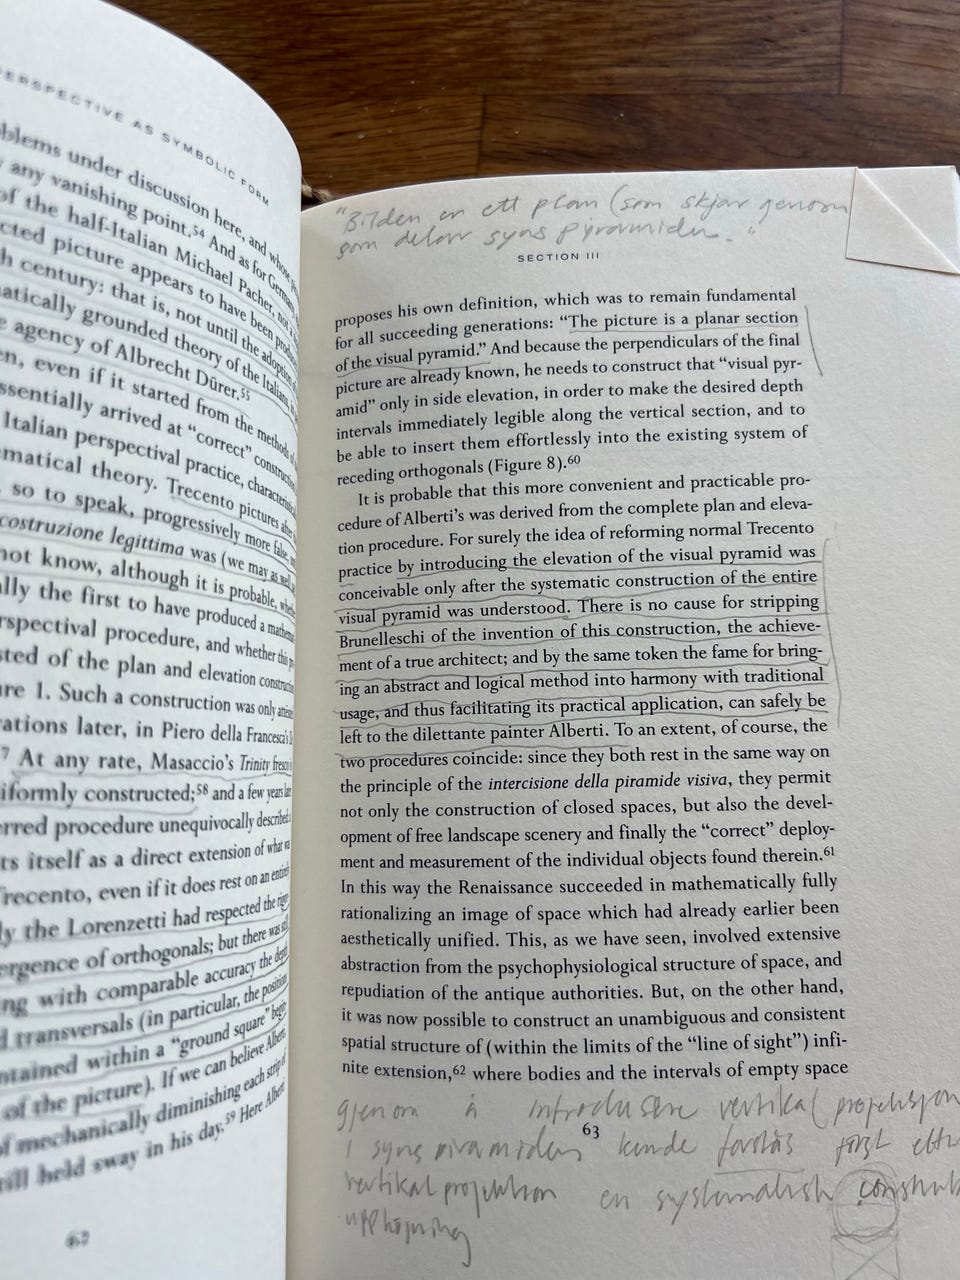 PERSPECTIVE AS SYMBOLIC FORM
blems under discussion here, and whose
any vanishing point.54 And as for German
of the half-Italian Michael Pacher, not a
cted picture appears to have been produ
h century: that is, not until the adoption of
atically grounded theory of the Italians,
e agency of Albrecht Dürer.55
en, even if it started from the methods of
ssentially arrived at “correct” construction
Italian perspectival practice, characteristi
matical theory. Trecento pictures after
, so to speak, progressively more false,
costruzione legittima was (we may as well
not know, although it is probable, whe
lly the first to have produced a mathema
rspectival procedure, and whether this
sted of the plan and elevation construc
re 1. Such a construction was only
rations later, in Piero della Francesca's
7 At any rate, Masaccio's Trinity fresco
iformly constructed;58 and a few years
rred procedure unequivocally described
ts itself as a direct extension of what
Trecento, even if it does rest on an entirely
ly the Lorenzetti had respected the
ergence of orthogonals; but there was
ng with comparable accuracy the depth
d transversals (in particular, the position
ntained within a “ground square” begin
of the picture). If we can believe Alberti
of mechanically diminishing each strip of
till held sway in his day.59 Here Alberti
62
"Bilden er ett plan (som skjär genom
som delar syns pyramiden."
SECTION III
proposes his own definition, which was to remain fundamental
for all succeeding generations: “The picture is a planar section
of the visual pyramid.” And because the perpendiculars of the final
picture are already known, he needs to construct that “visual pyr-
amid” only in side elevation, in order to make the desired depth
intervals immediately legible along the vertical section, and to
be able to insert them effortlessly into the existing system of
receding orthogonals (Figure 8).60
It is probable that this more convenient and practicable pro-
cedure of Alberti's was derived from the complete plan and eleva-
tion procedure. For surely the idea of reforming normal Trecento
practice by introducing the elevation of the visual pyramid was
conceivable only after the systematic construction of the entire
visual pyramid was understood. There is no cause for stripping
Brunelleschi of the invention of this construction, the achieve-
ment of a true architect; and by the same token the fame for bring-
ing an abstract and logical method into harmony with traditional
usage, and thus facilitating its practical application, can safely be
left to the dilettante painter Alberti. To an extent, of course, the
two procedures coincide: since they both rest in the same way on
the principle of the intercisione della piramide visiva, they permit
not only the construction of closed spaces, but also the devel-
opment of free landscape scenery and finally the “correct” deploy-
ment and measurement of the individual objects found therein.61
In this way the Renaissance succeeded in mathematically fully
rationalizing an image of space which had already earlier been
aesthetically unified. This, as we have seen, involved extensive
abstraction from the psychophysiological structure of space, and
repudiation of the antique authorities. But, on the other hand,
it was now possible to construct an unambiguous and consistent
spatial structure of (within the limits of the “line of sight”) infi-
nite extension,62 where bodies and the intervals of empty space
gjenom å introdusere vertikal projeksjon
63
i syns piramiden kunde forstås først ett
vertikal projektion en systematisk construk
upphøjning